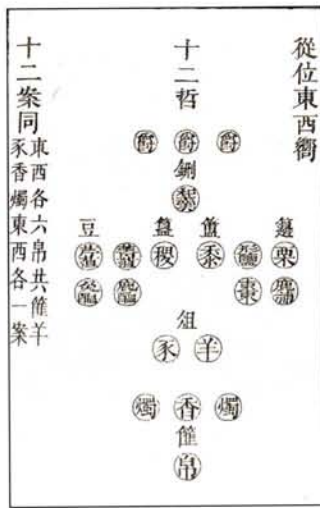 從位東西嚮
十二哲
爵 爵 爵
鉶
羹
籩 簠 簋 豆
栗 形鹽 黍 稷
鹿脯 棗 鹿醢 兔醢
俎
羊 豕
燭 香 燭
篚
帛
十二案同
東西各六帛共篚羊
豕香燭東西各一案